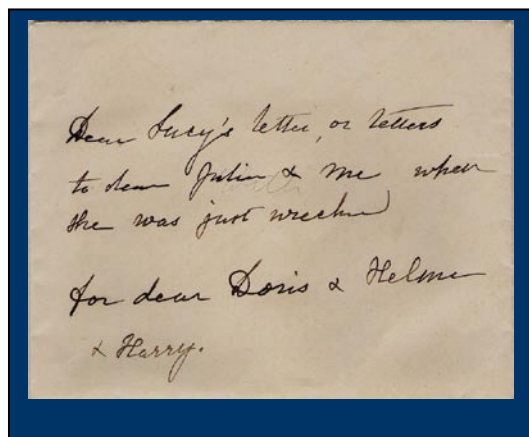 Dear Lucy's letter, or letters
to dear Julia & me when
she was just wrecked
for dear Doris & Helme
& Harry.